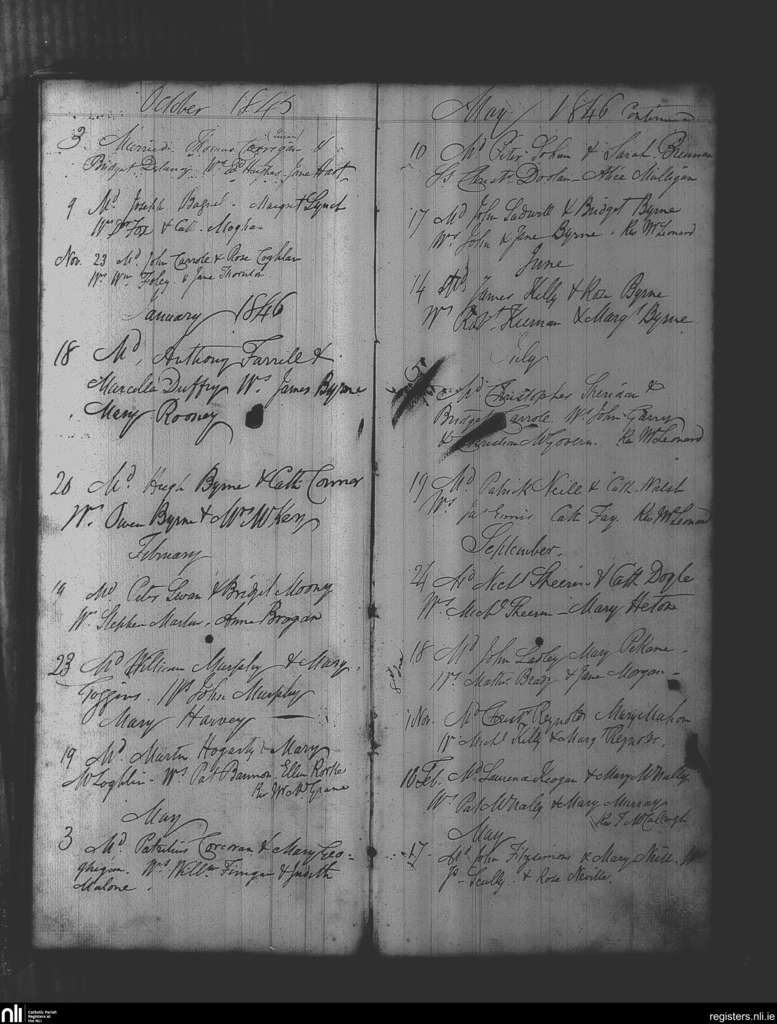 October 1845
3 Married Thomas Corrigan &
Bridget Delany Ws Hughes Jane Hart
9 Md Joseph Bagnel Margret Lynch
Ws Fox & Cath Meghan
Nov. 23 Md John Carrole & Rose Coghlan
Ws Wm Foley & Jane Thornton
January 1846
18 Md, Anthony Farrell &
Marcella Duffry Ws James Byrne
Mary Rooney
20 Md Hugh Byrne & Cath Connor
Ws Owen Byrne & Mrs McKey
February
19 Md Peter Swan & Bridget Moony
Ws Stephen Marten. Anne Brogan
23 Md William Murphy & Mary
Goggins. Ws John Murphy
Mary Harvey
19 Md Martin Hogarty & Mary
McLoghlin - Ws Pat Bannon Ellen Rorke
Rev Mr McGrane
May
3 Md Patrick Corcoran & Mary Geo-
ghegan. Ws Willm Finegan & Judith
Malone.
May 1846 Continued
10 Md Peter Tobin & Sarah Brennan
Ss Christr Doolan - Alice Mulligan
17 Md John Sadwill & Bridget Byrne
Ws John & Jane Byrne. Rev Mr Leonard
June
14 Md James Kelly & Rose Byrne
Ws Robt Keenan & Margt Byrne
July
Md Christopher Sheridan &
Bridget Carrole Ws John Garry
& McGovern. Rev Mr Leonard
19 Md Patrick Neill & Cath Walsh
Ws Jas Ennis Cath Fay. Rev Mr Leonard
September.
24 Md Michl Sheerin & Cath Dogle
Ws Michl Sheerin - Mary Heton
18 Md John Lawley Mary
Ws Mathw Brady & Jane Morgan -
1 Nov. Md Christr Reynolds Mary Mahon
Ws Michl Kelly & Margt Reynolds.
16 Feb. Md Laurence Keogan & Mary McNally.
Ws Pat McNally & Mary Murray
Rev T McCullogh
May
17 Md John Fitzsimons & Mary Neill. Ws
Jas Scully. & Rose Neville.
nli Catholic Parish
Registers at
the NLI
registers.nli.ie